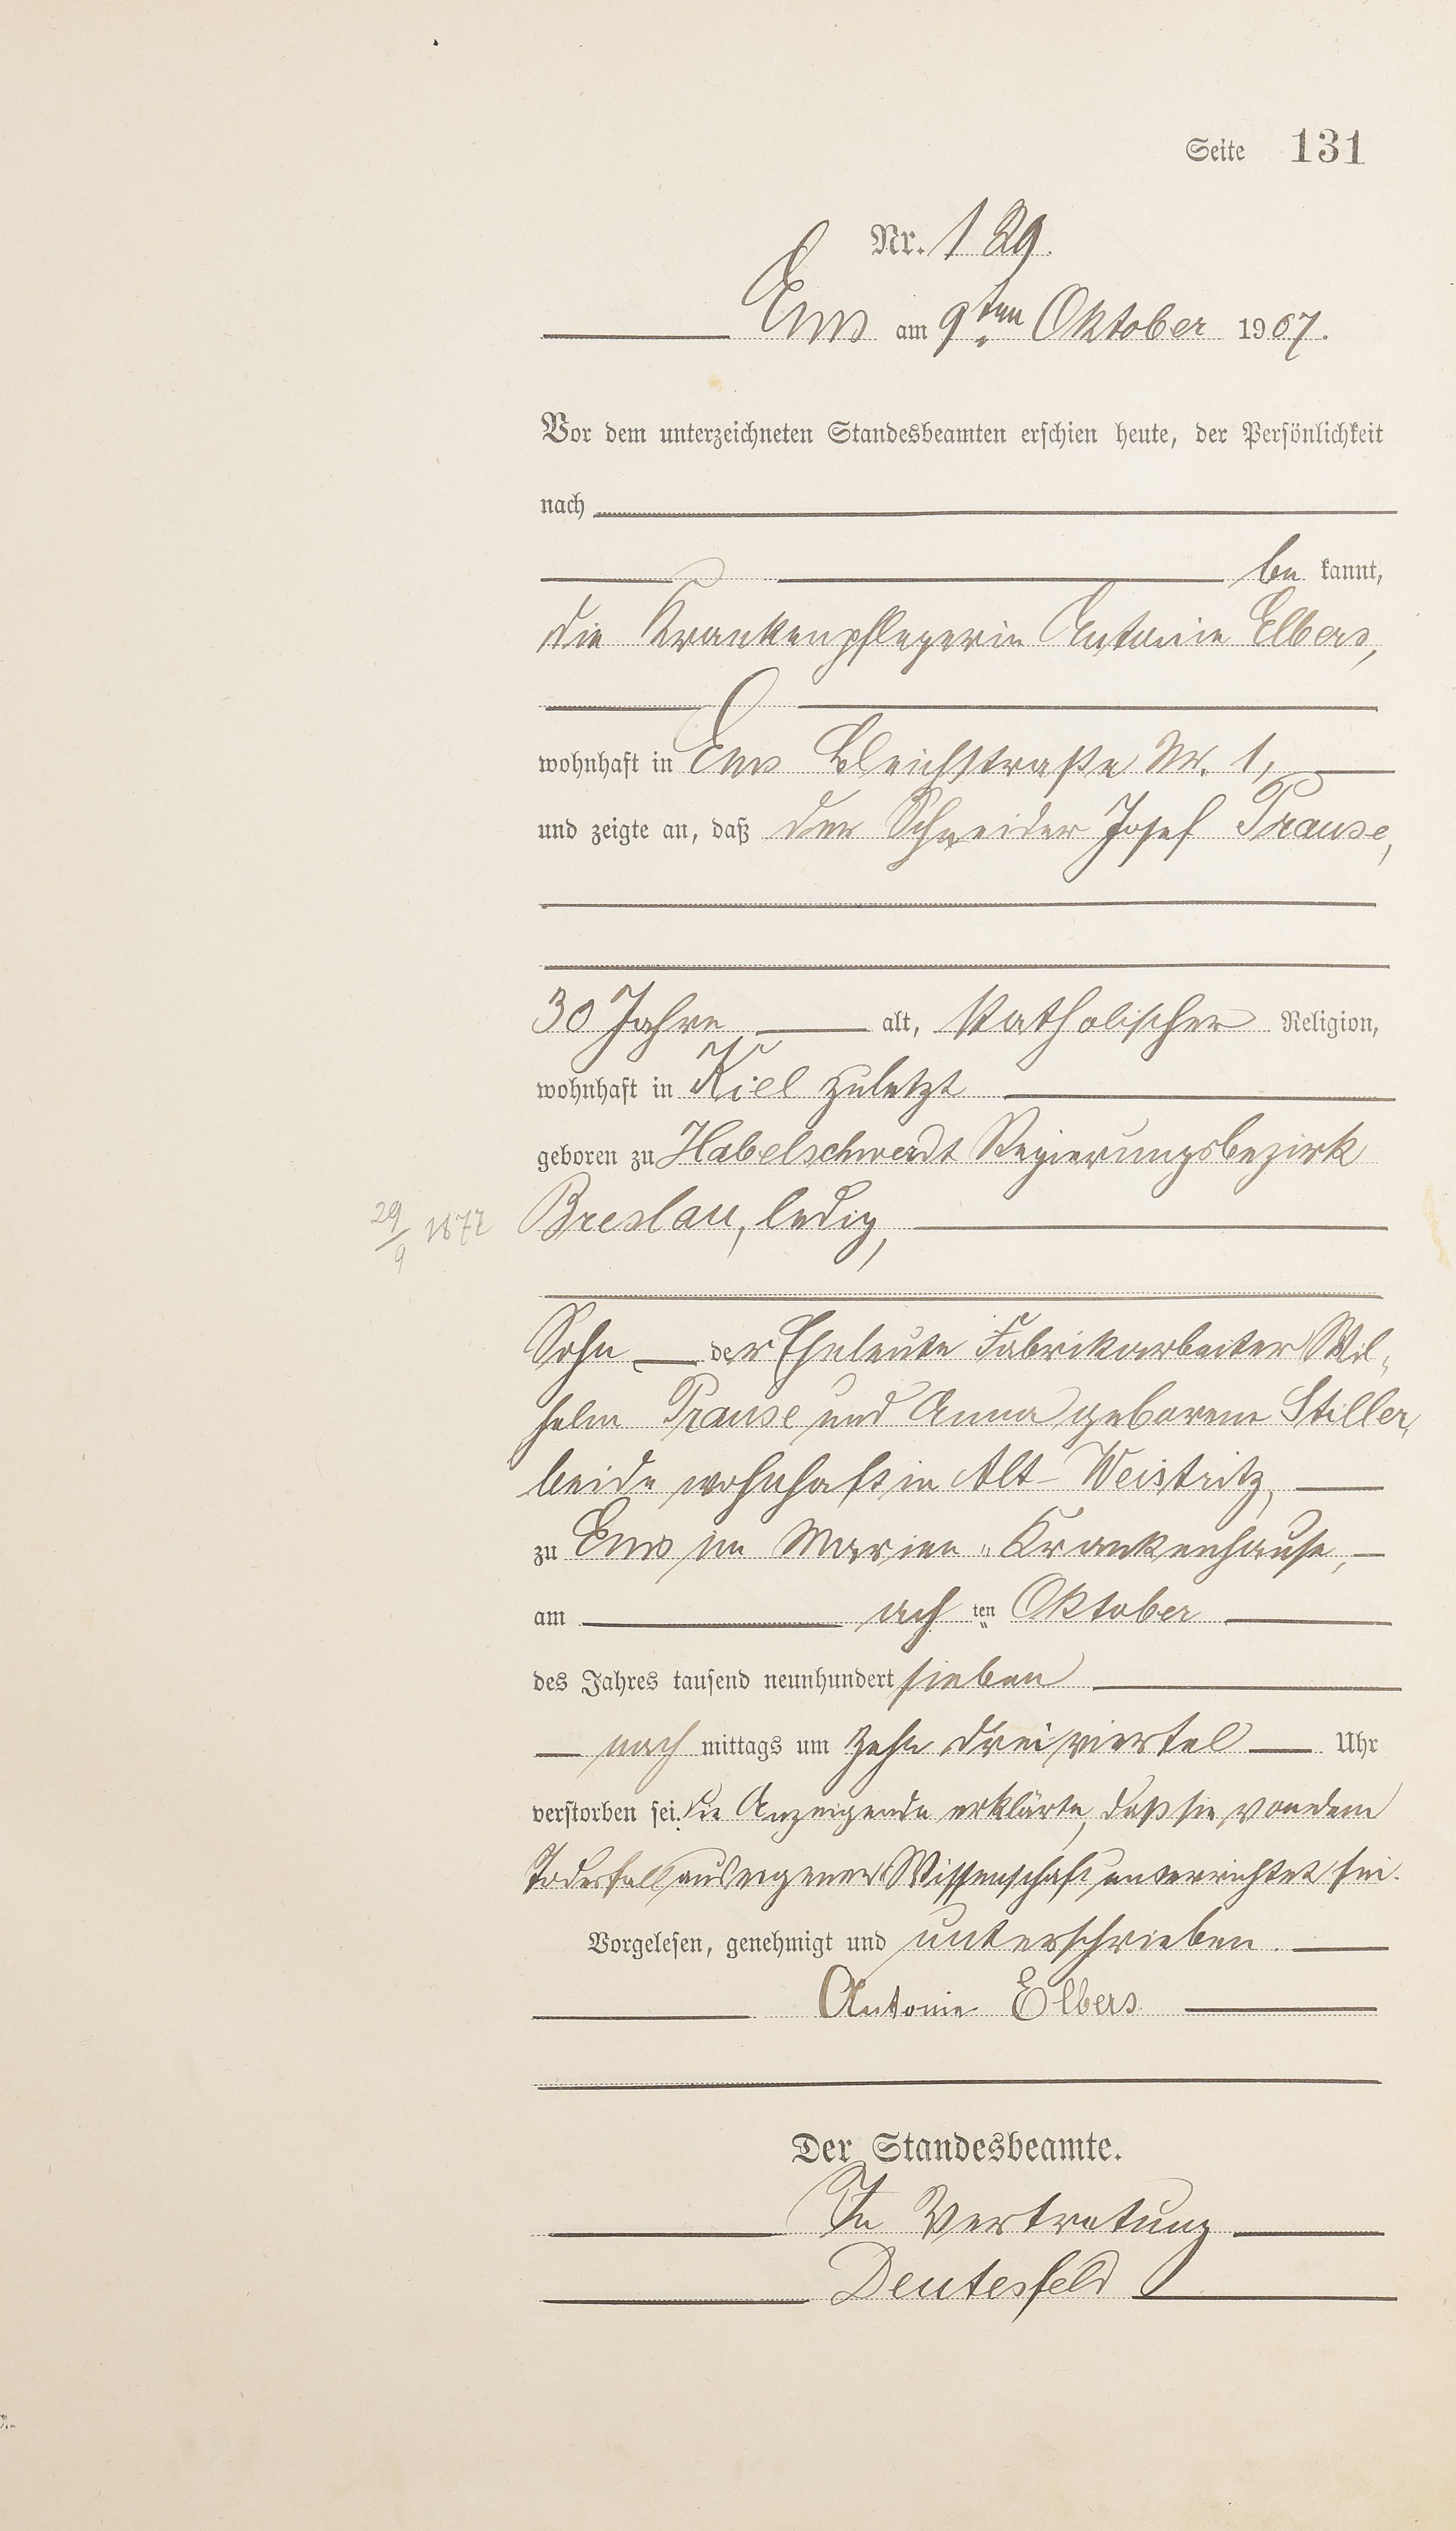 Seite 131
Nr. 129.
Ems am 9ten Oktober 1907.
Vor dem unterzeichneten Standesbeamten erschien heute, der Persönlichkeit
nach
be kannt,
die Krankenpflegerin Antonie Elbers,
wohnhaft in Ems Bleichstraße Nr. 1,
und zeigte an, daß der Schneider Josef Prause,
30 Jahre alt, katholischer Religion,
wohnhaft in Kiel zuletzt
geboren zu Habelschwerdt Regierungsbezirk
29/9 1877 Breslau, ledig,
Sohn der Eheleute Fabrikarbeiter Wil-
helm Prause und Anna geborene Stiller,
beide wohnhaft in Alt-Weistritz,
zu Ems im Marien-Krankenhause,
am ach ten Oktober
des Jahres tausend neunhundert sieben
nach mittags um zehn dreiviertel Uhr
verstorben sei. Die Anzeigende erklärte, daß sie von dem
Todesfall aus eigener Wissenschaft unterrichtet sei.
Vorgelesen, genehmigt und unterschrieben.
Antonie Elbers
Der Standesbeamte.
In Vertretung
Deutesfeld